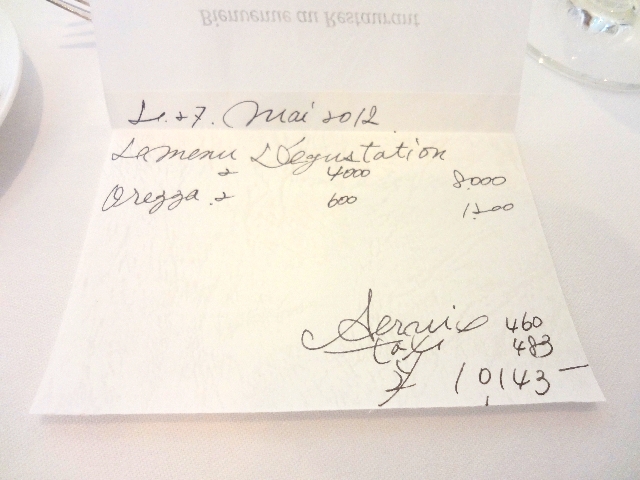 Bienvenue au Restaurant
Le. 27. Mai 2012.
La menu Dégustation
2 4000 8.000
Orezza. 2 600 1.200
Service 460
taxe 483
¥ 10,143-